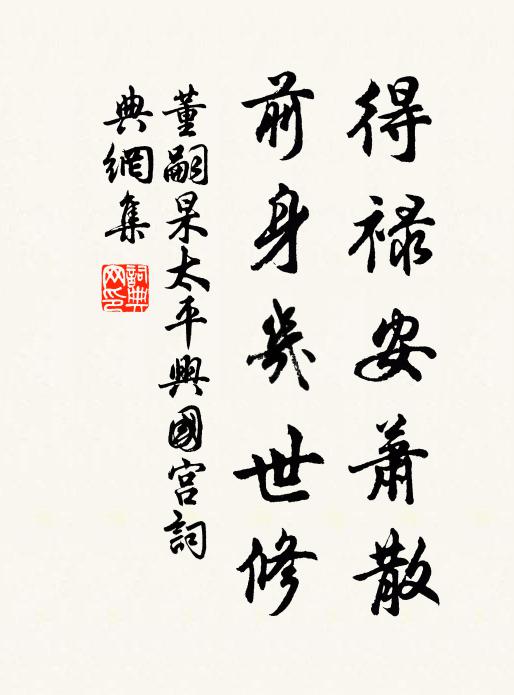 得禄安蕭散
前身幾世修
董嗣杲太平興國宮詞
典網集
詞典網印